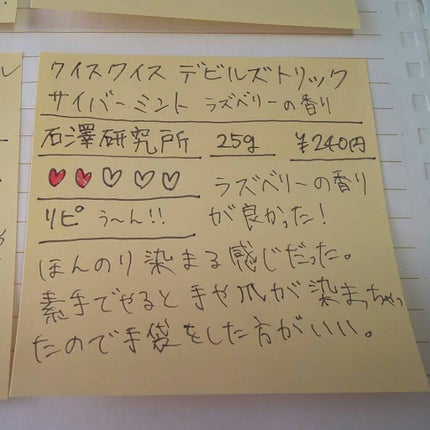 クイスクイス デビルズトリック
サイバーミント ラズベリーの香り
石澤研究所 25g ¥240円
♥♥♡♡♡ ラズベリーの香り
が良かった!
リピ う〜ん!!
ほんのり染まる感じだった。
素手でやると手や爪が染まっちゃっ
たので手袋をした方がいい。